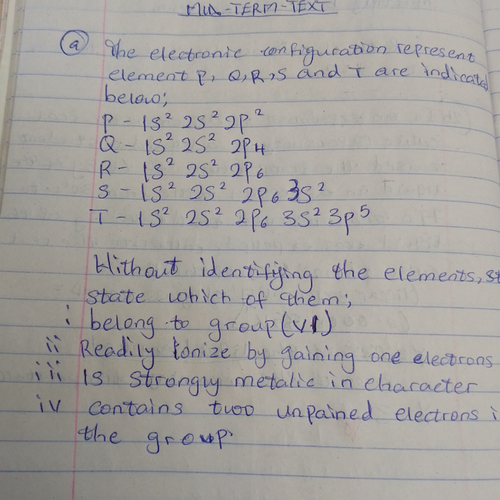 MID-TERM-TEXT
(a) The electronic configuration represent
element P, Q, R, S and T are indicated
below;
P - 1S² 2S² 2P²
Q - 1S² 2S² 2P4
R - 1S² 2S² 2P6
S - 1S² 2S² 2P6 3S²
T - 1S² 2S² 2P6 3S² 3P⁵
Without identifying the elements, st
state which of them;
i belong to group (VI)
ii Readily Ionize by gaining one electrons
iii Is strongly metalic in character
iv contains two unpained electrons i
the group.